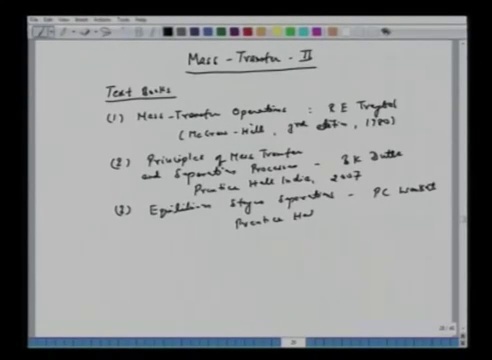 Mass-Transfer-II
Text Books
(1) Mass-Transfer Operations : R E Treybal
(McGraw-Hill, 3rd edition, 1980)
(2) Principles of Mass Transfer
and Separation Processes - B K Dutta
Prentice Hall India, 2007
(3) Equilibrium Stage Separations - PC Wankat
Prentice Hal